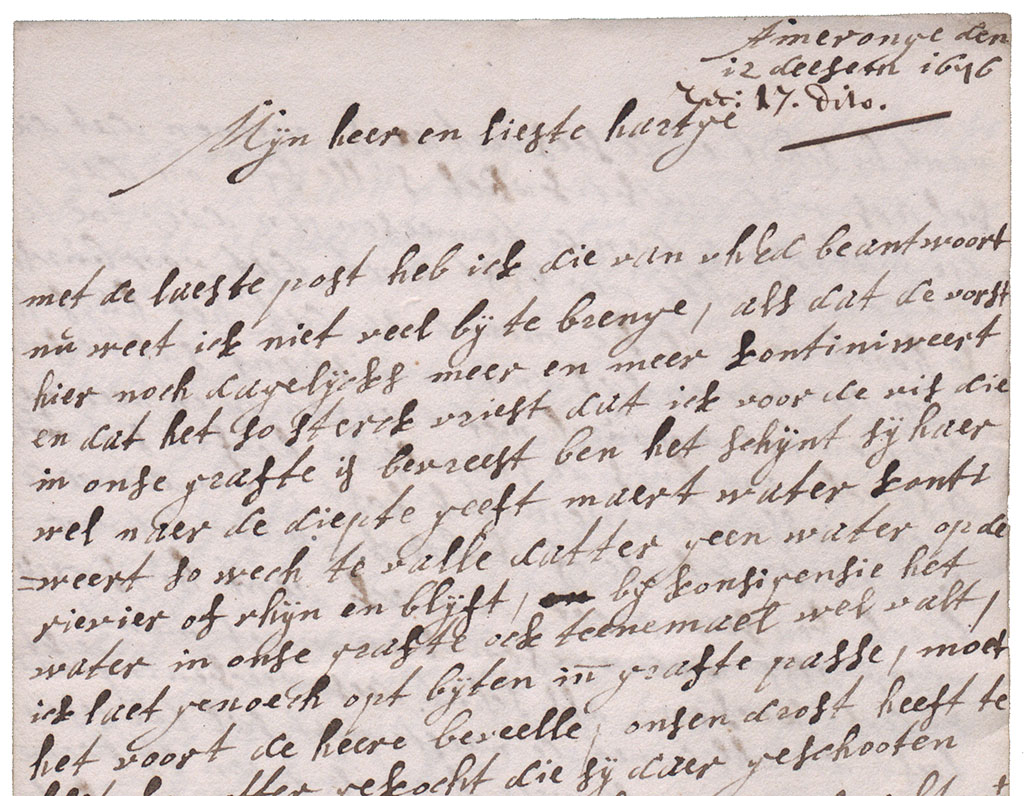 Ameronge den
12 deesem 1676
Rec: 17. dito.
Mijn heer en lieste hartge
met de laeste post heb ick die van uhEd beantwoort
nu weet ick niet veel bij te brenge, als dat de vorst
hier noch dagelijcks meer en meer kontiniweert
en dat het so sterck vriest dat ick voor de vis die
in onse grafte is bevreest ben het schijnt sij haer
wel naer de diepte geeft maert water konti
=weert so wech te valle datter geen water op de
rievier of rhijn en blijft, bij konsirensie het
water in onse grafte ock teenemael wel valt,
ick laet genoech opt bijten in grafte passe, moet
het voort de heere beveelle, onsen drost heeft te
gekocht die sij daer geschooten